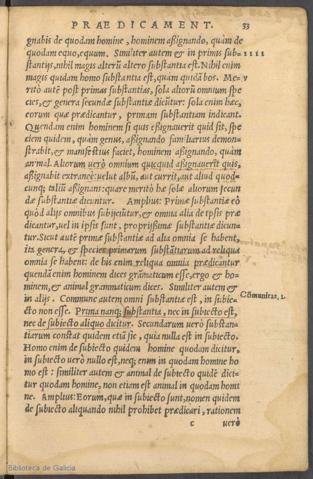 PRAEDICAMENT. 53
gnabis de quodam homine, hominem aßignando, quàm de
quodam equo, equum. Similiter autem & in primis sub- IIII
stantijs, nihil magis alterũ altero substantia est. Nihil enim
magis quidam homo substantia est, quàm quidã bos. Me-
ritò autẽ post primas substantias, sola aliorũ omnium spe
cies, & genera secundæ substantiæ dicũtur: sola enim hæc,
eorum quæ prædicantur, primam substantiam indicant.
Quendam enim hominem si quis aßignauerit quid sit, spe
ciem quidem, quàm genus, aßignando familiarius demon-
strabit, & manifestius faciet, hominem aßignando, quàm
animal. Aliorum uerò omnium quicquid aßignauerit quis,
aßignabit extraneè: uelut albũ, aut currit, aut aliud quod-
cunq; talium aßignans: quare meritò hæ solæ aliorum secun
dæ substantiæ dicuntur. Amplius: Primæ substantiæ eò
quòd alijs omnibus subijciũtur, & omnia alia de ipsis præ
dicantur, uel in ipsis sunt, proprijßimæ substantiæ dicun-
tur. Sicut autẽ primæ substantiæ ad alia omnia se habent,
ita genera, & species primarum substãtiarum ad reliqua
omnia se habent: de his enim reliqua omnia prædicãtur
quendã enim hominem dices grãmaticum esse, ergo & ho-
minem, & animal grammaticum dices. Similiter autem &
in alijs. Commune autem omni substantiæ est, in subie- Cõmunitas, 1.
cto non esse. Prima nanq; substantia, nec in subiecto est,
nec de subiecto aliquo dicitur. Secundarum uerò substan-
tiarum constat quidem etiã sic, quia nulla est in subiecto.
Homo enim de subiecto quidem homine quodam dicitur,
in subiecto uerò nullo est, neq; enim in quodam homine ho
mo est: similiter autem & animal de subiecto quidẽ dici-
tur quodam homine, non etiam est animal in quodam homi
ne. Amplius: Eorum, quæ in subiecto sunt, nomen quidem
de subiecto aliquando nihil prohibet prædicari, rationem
c uerò
Biblioteca de Galicia